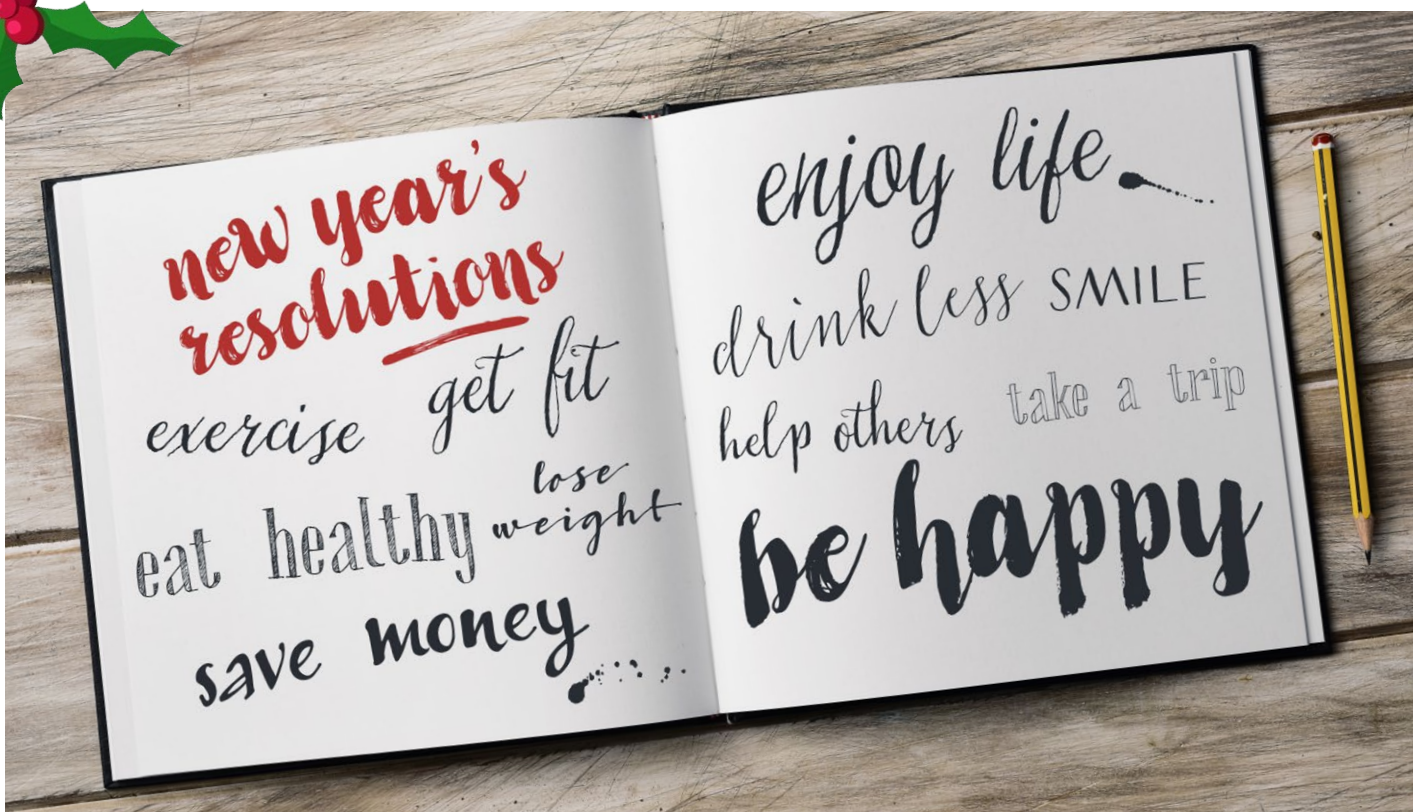 new year's
resolutions
exercise get fit
eat healthy lose weight
save money
enjoy life
drink less SMILE
help others take a trip
be happy